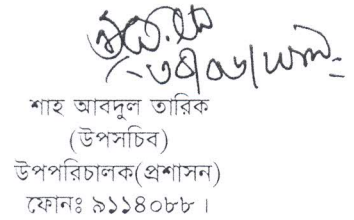 শাহ আবদুল তারিক
(উপসচিব)
উপপরিচালক(প্রশাসন)
ফোনঃ ৯১১৪০৮৮ ।